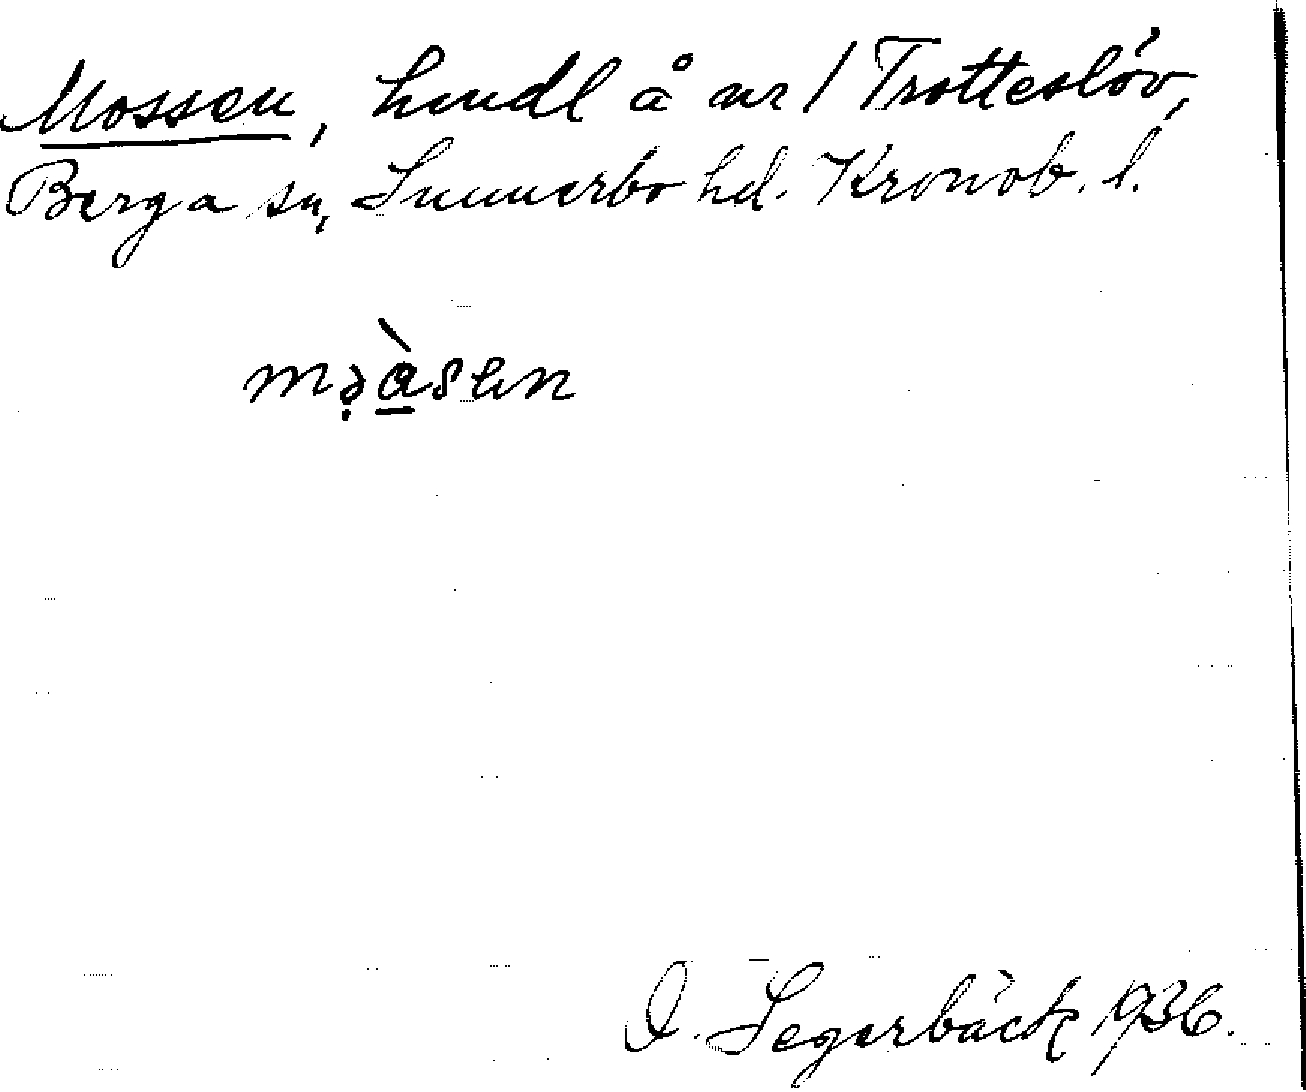 Mossen, hmdl å nr 1 Trotteslöv,
Berga sn, Sunnerbo hd. Kronob. l.
O. Segerbäck 1936.